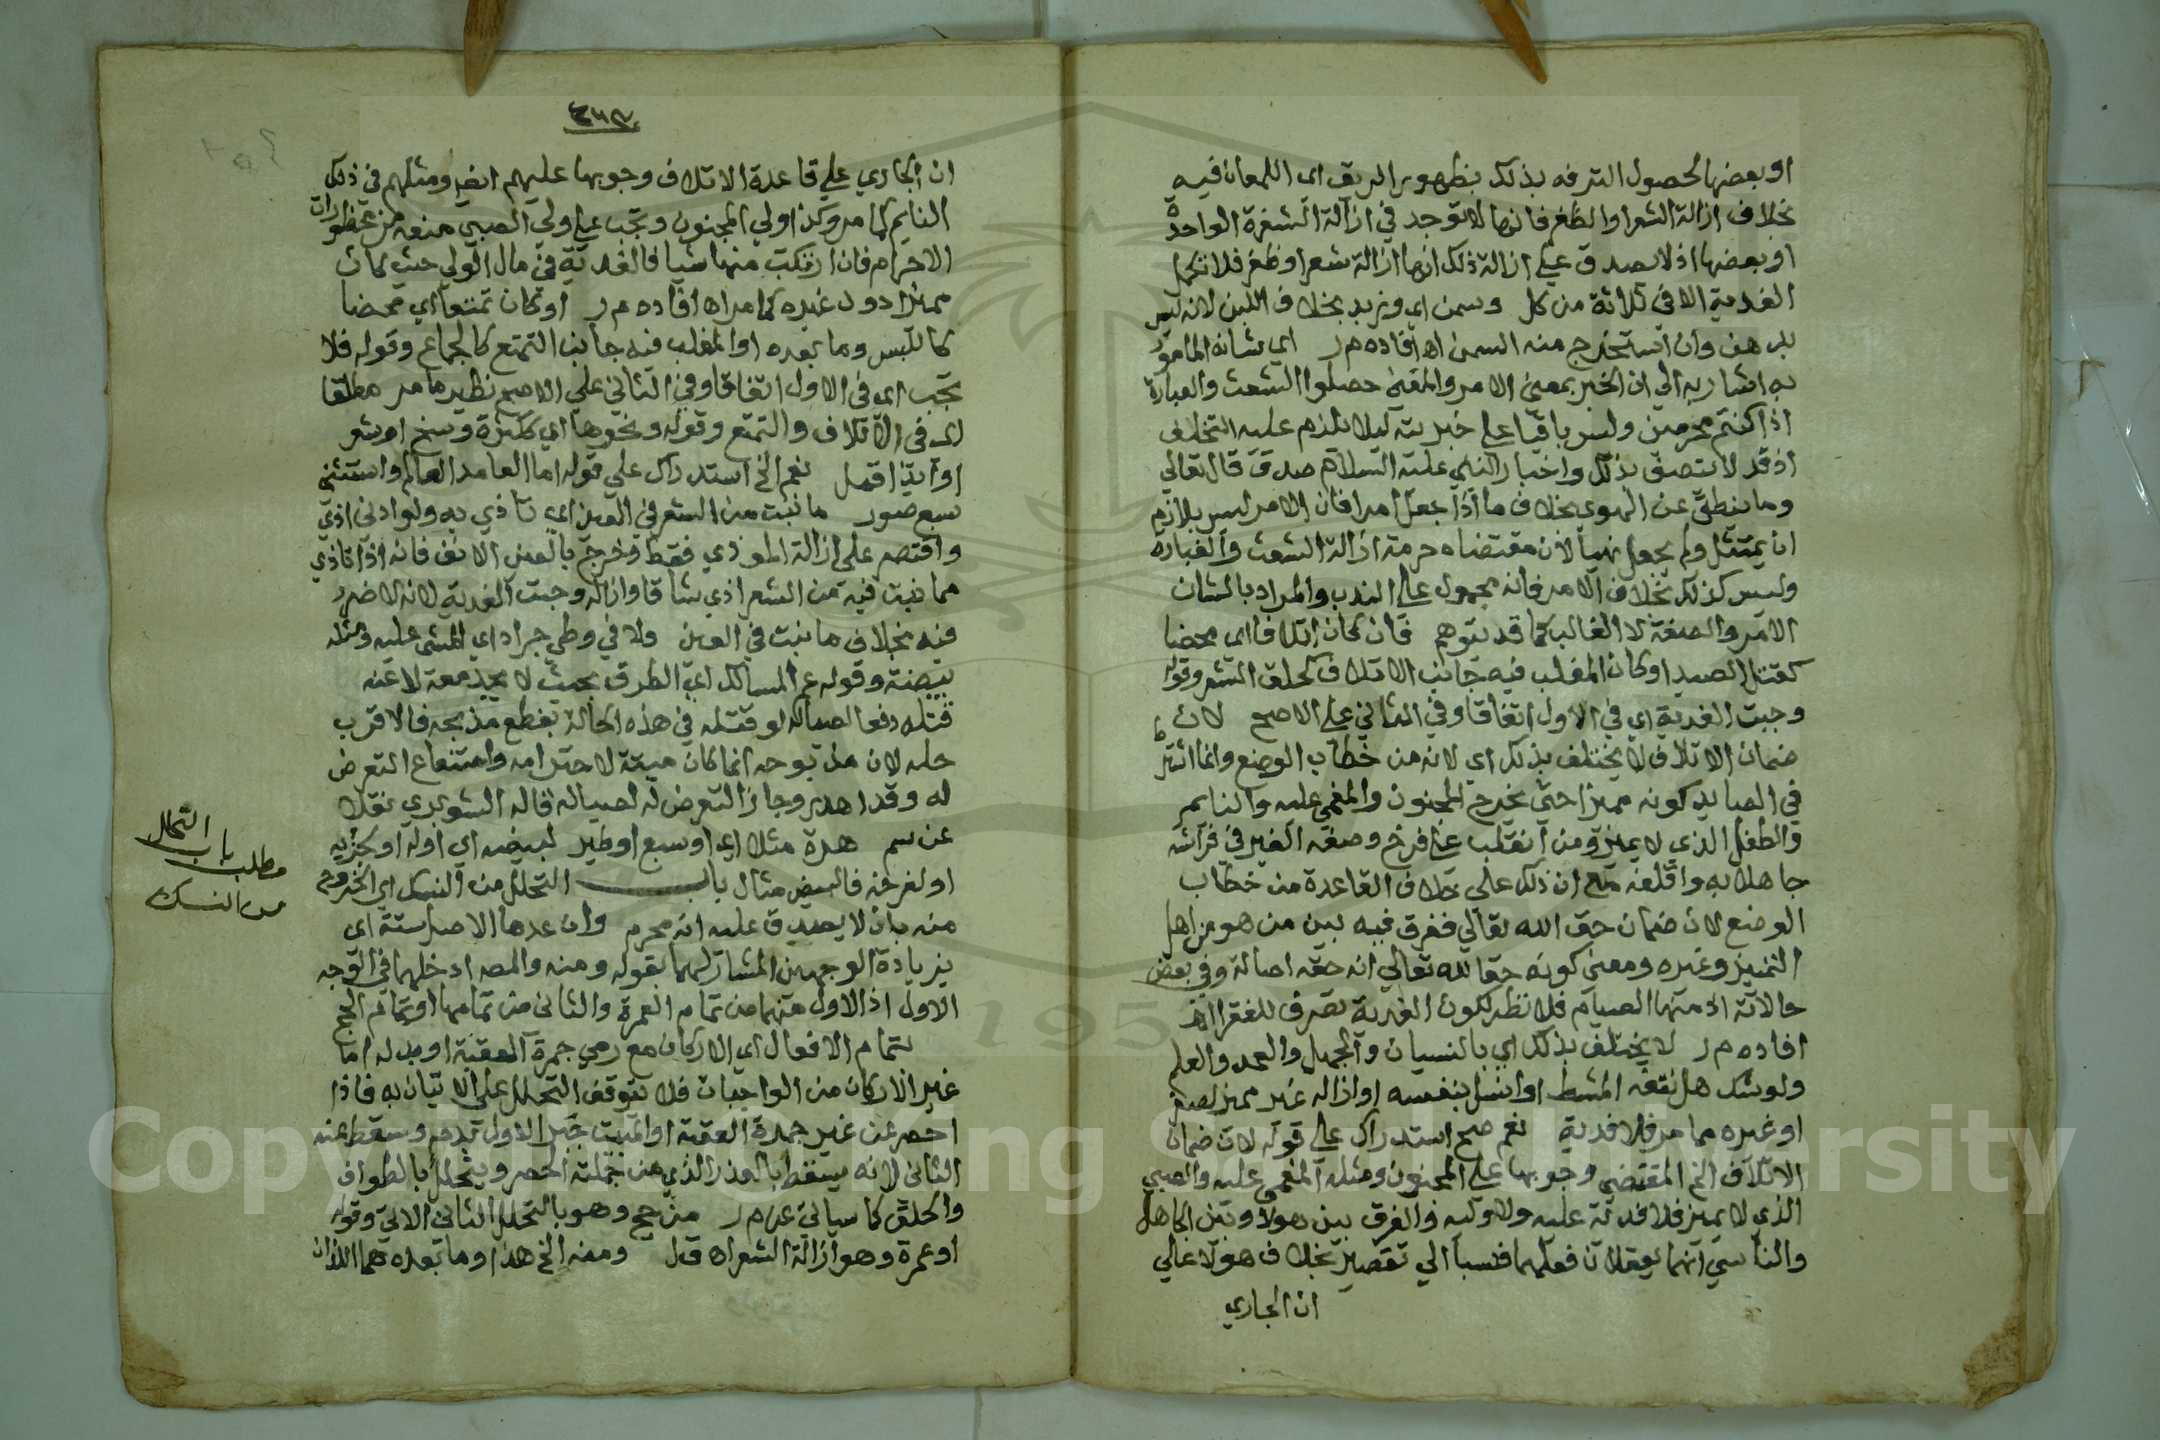 او بعضها لحصول الترفه بذلك بظهور البريق اى اللمعان فيه
بخلاف ازالة الشعر او الظفر فانها لا توجد في ازالة الشعرة الواحدة
او بعضها اذ لا يصدق على ازالة ذلك انها ازالة شعر او ظفر فلا تكمل
الفدية الا في ثلاثة من كل وسمن اي وزبد بخلاف اللبن لانه ليس
بدهن وان استخرج منه السمن اه افاده م ر اي شانه المامور
به اشار به الي ان الخبر بمعنى الامر والمعنى حصلوا الشعث والغبارة
اذا كنتم محرمين وليس باقيا على خبريته ليلا يلزم عليه التخلف
اذ قد لا يتصف بذلك واخبار النبي عليه السلام صدق قال تعالي
وما ينطق عن الهوى بخلاف ما اذا جعل امرا فان الامر ليس بلازم
ان يمتثل ولم يجعل نهيا لان مقتضاه حرمة ازالة الشعث والغبارة
وليس كذلك بخلاف الامر فانه محمول على الندب والمراد بالشان
الامر والصفة لا الغالب كما قد يتوهم فان كان اتلافا اى محضا
كقتل الصيد او كان المغلب فيه جانب الاتلاف كحلق الشعر وقوله
وجبت الفدية اي في الاول اتفاقا وفي الثاني على الاصح لان
ضمان الاتلاف لا يختلف بذلك اي لانه من خطاب الوضع وانما اشترط
في الصايد كونه مميزا حتى يخرج المجنون والمغمى عليه والنايم
والطفل الذى لا يميز ومن انقلب على فرخ وضعه الغير في فراشه
جاهلا به واتلفه مع ان ذلك على خلاف القاعدة من خطاب
الوضع لان ضمان حق الله تعالي ففرق فيه بين من هو من اهل
التمييز وغيره ومعنى كونه حقا لله تعالي انه حقه اصالة وفي بعض
حالاته اذ منها الصيام فلا نظر لكون الفدية تصرف للفقرا اه
افاده م ر لا يختلف بذلك اي بالنسيان والجهل والعمد والعلم
ولو شك هل نتفه المشط او انسل بنفسه او ازاله غير مميز لصغر
او غيره مما مر فلا فدية نعم صح استدراك على قوله لان ضمان
الاتلاف الخ المقتضى وجوبها على المجنون ومثله المغمى عليه والصبي
الذي لا يميز فلا فدية عليه ولا وليه والفرق بين هولا وبين الجاهل
والناسي انهما يعقلان فعلهما فنسبا الي تقصير بخلاف هولا علي
ان الجاري
٤٦٣
ان الجاري علي قاعدة الاتلاف وجوبها عليهم ايضا ومثلهم في ذلك
النايم كما مر وكذا ولي المجنون ويجب على ولي الصبي منعه من محظورات
الاحرام فان ارتكب منها شيا فالفدية في مال الولي حيث كان
مميزا دون غيره كما مر اه افاده م ر او كان تمتعا اي محضا
كاللبس وما بعده او المغلب فيه جانب التمتع كالجماع وقوله فلا
تجب اى في الاول اتفاقا وفي الثاني علي الاصح نظير ما مر مطلقا
اى في الاتلاف والتمتع وقوله ونحوها اي ككثرة وسخ او شعر
او تاذ اقمل نعم الخ استدراك علي قوله اما العامد العالم واستثنى
سبع صور ما نبت من الشعر في العين اي تاذي به ولو ادنى اذي
واقتصر علي ازالة الموذي فقط وخرج بالعين الانف فانه اذا تاذي
مما نبت فيه من الشعر اذي شاقا وازاله وجبت الفدية لانه لا ضرر
فيه بخلاف ما نبت في العين ولا في وطي جراد اي المشي عليه ومثله
بيضه وقوله عم المسالك اي الطرق بحيث لا يجد معه لا عنه
قتله دفعا لصياله لو قتله في هذه الحالة بقطع مذبحه فالاقرب
حله لان مذبوحه انما كان ميتة لاحترامه وامتناع التعرض
له وقد اهدر وجاز التعرض له لصياله قاله الشوبري نقلا
عن سم هرة مثلا اي او سبع او طير لبيضه اي اوله او لجزيه
او لفرخه فالبيض مثال باب التحلل من النسك اي الخروج
منه بان لا يصدق عليه انه محرم وان عدها الاصل ستة اى
بزيادة الوجهين المشار لهما بقوله ومنه والمصـ ادخلهما في الوجه
الاول اذ الاول منهما من تمام العمرة والثاني من تمامها او تمام الحج
بتمام الافعال اي الاركان مع رمي جمرة العقبة او بدله اما
غير الاركان من الواجبات فلا يتوقف التحلل على الاتيان به فاذا
احصر عن غير جمرة العقبة او المبيت جبر الاول بدم وسقط عنه
الثاني لانه يسقط بالعذر الذي من جملته الحصر ويتحلل بالطواف
والحلق كما سياتي عن م ر من حج وهو بالتحلل الثاني الاتي وقوله
او عمرة وهو ازالة الشعر اه ق ل ومنه الخ هذا وما بعده هما اللذان
مطلب باب التحلل
من النسك
Copyright © King Saud University
195